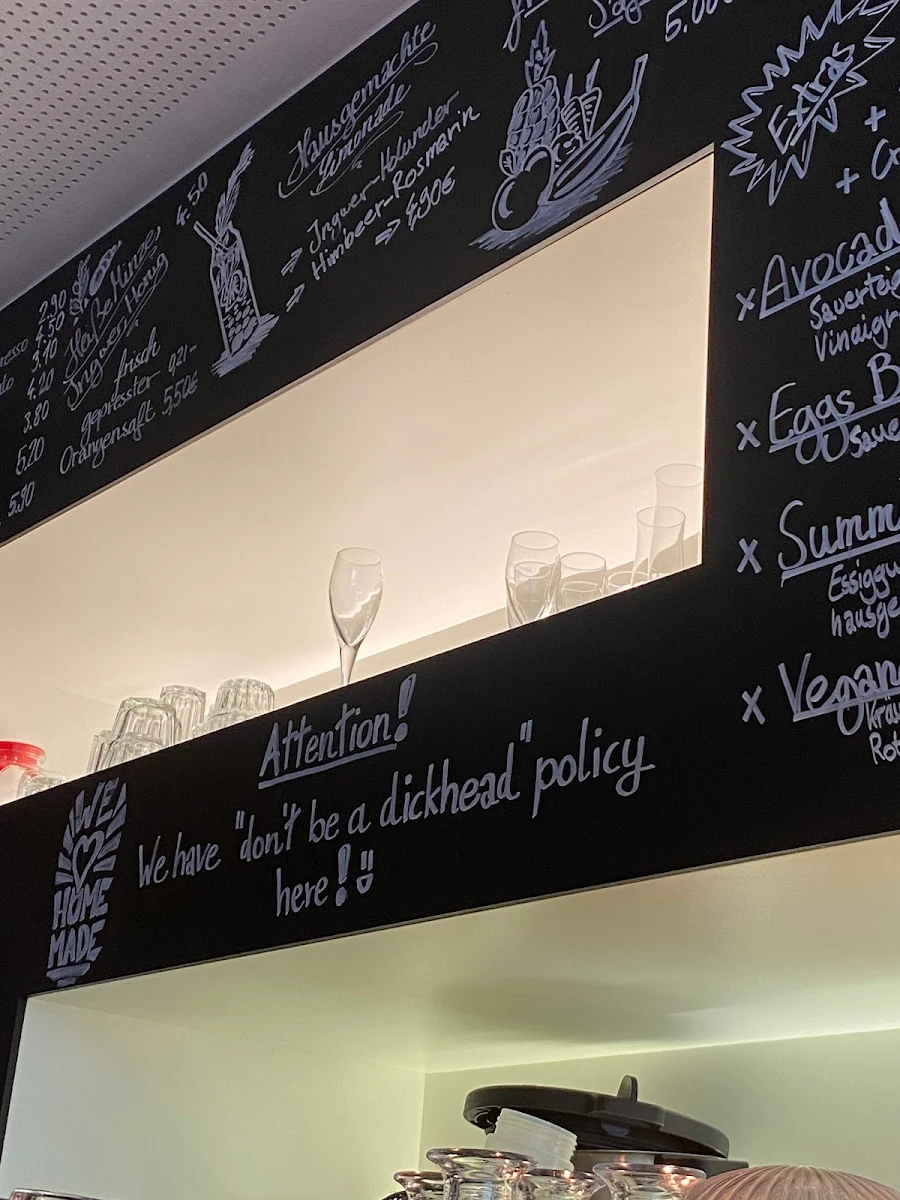 2.90
4.50
3.10
4.20
3.80
5.20
5.30
Heiße Minze
Ingwer, Honig
4.50
frisch
gepresster 0,2l-
Orangensaft 5,50€
Hausgemachte
Limonade
⇒ Ingwer-Holunder
⇒ Himbeer-Rosmarin
⇒ 4,90€
Extras
+
+
x Avocad
Sauerteig
Vinaigr
x Eggs B
Saue
x Summ
Essiggu
hausge
x Vegan
Kräu
Rot
Attention!
We have "don't be a dickhead" policy
here!
WE
HOME
MADE